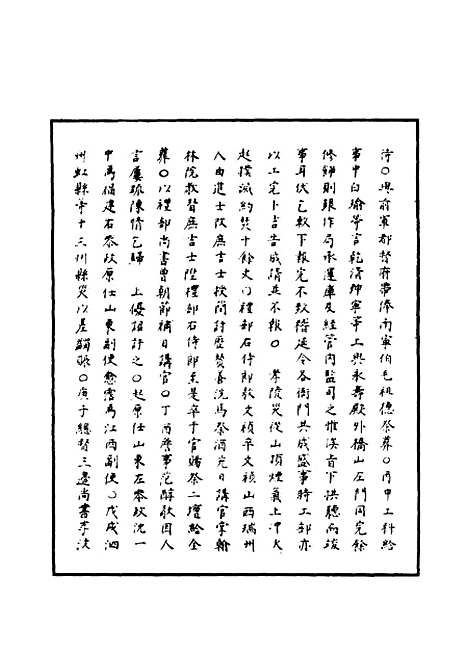 淂○堺前軍都督府帶俸南寧伯毛祖德祭葬○丙申工科給
事中白瑜等言乾清坤寧等工與永壽殿外橋山左門同完餘
修飾則銀作局承運庫及經管内監司之惟渙旨下拱聽而竣
事耳伏乞敕下報完不致稽延令各衙門共成盛事時工部亦
以工完卜吉告成請並不報○ 孝陵災從山頂煙氣上冲火
起撲滅約焚十餘丈○禮部右侍郎敖文禎卒文禎山西瑞州
人由進士改庶吉士授簡討歷贊善洗馬祭酒充日講官掌翰
林院教習庶吉士陞禮部右侍郎至是卒于官賜祭二壇給全
葬○以禮部尚書曾朝節補日講官○丁酉詹事范醇敬因人
言屢疏陳情乞歸 上優詔許之○起原任山東左參政沈一
中為福建右參政原任山東副使詹霑為江西副使○戊戌泗
州虹縣等十三州縣災以差蠲賑○庚子總督三邊尚書李汶